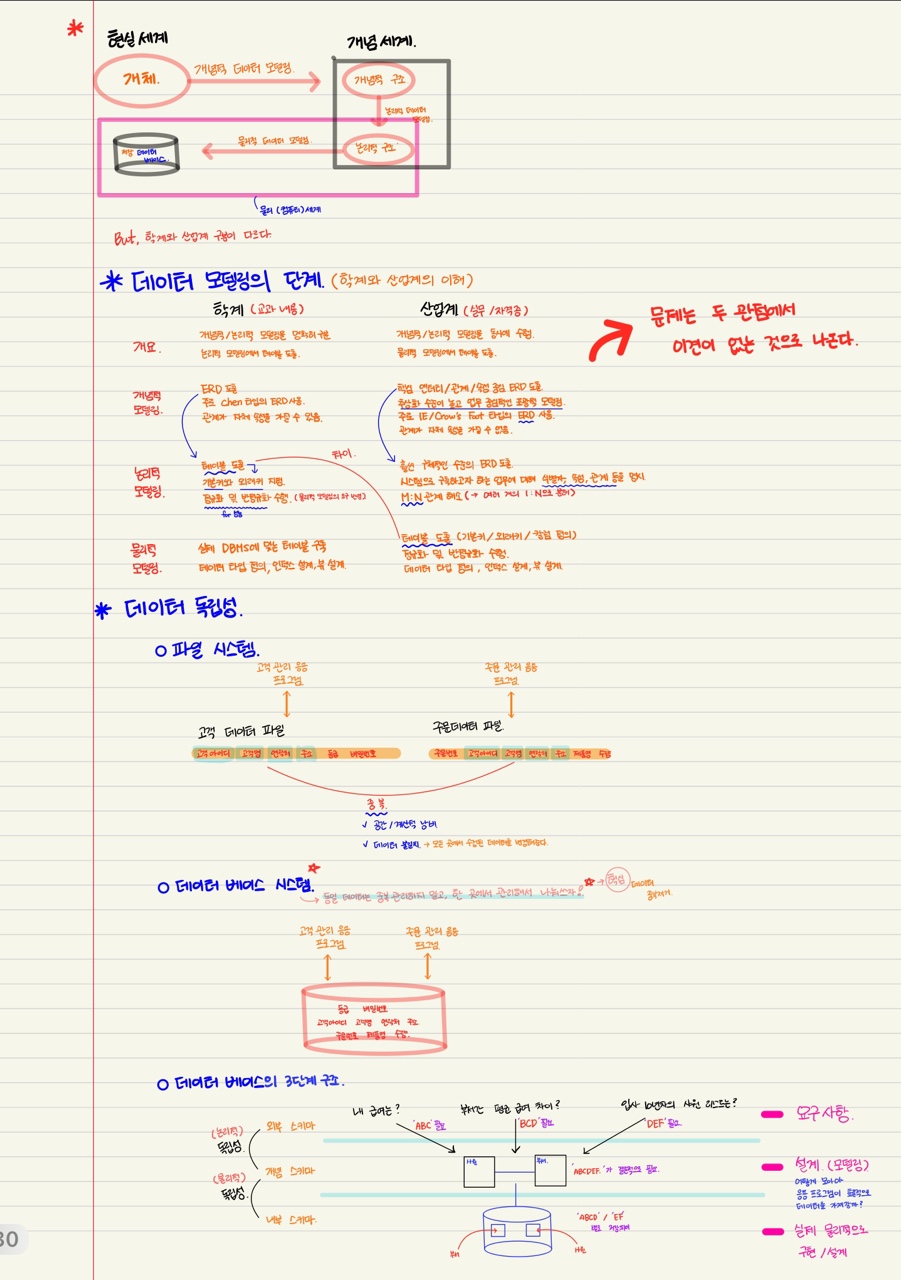 현실 세계
개념 세계.
개체.
개념적 데이터 모델링.
개념적 구조
논리적 데이터
모델링.
물리적 데이터 모델링.
논리적 구조
저장 데이터
베이스.
물리 (컴퓨터) 세계
But, 학계와 산업계 구분이 다르다.
* 데이터 모델링의 단계. (학계와 산업계의 이해)
학계 (교과 내용)
산업계 (실무 / 자격증)
문제는 두 관점에서
이견이 없는 것으로 나온다.
개요.
개념적/논리적 모델링을 명확히 구분.
논리적 모델링에서 테이블 도출.
개념적/논리적 모델링을 동시에 수행.
물리적 모델링에서 테이블 도출.
개념적
모델링.
ERD 도출
주로 Chen 타입의 ERD 사용.
관계가 자체 속성을 가질 수 있음.
핵심 엔터티/관계/속성 중심 ERD 도출.
추상화 수준이 높고 업무 중심적인 포괄적 모델링.
주로 IE/Crow's Foot 타입의 ERD 사용.
관계가 자체 속성을 가질 수 없음.
차이.
논리적
모델링.
테이블 도출
기본키와 외래키 지정.
정규화 및 반정규화 수행.
좀 더 구체적인 수준의 ERD 도출.
시스템으로 구축하고자 하는 업무에 대해 식별자, 속성, 관계 등을 명시.
M:N 관계 해소 (→ 여러 개의 1:N으로 분해)
물리적
모델링.
실제 DBMS에 맞는 테이블 구축
데이터 타입 정의, 인덱스 설계, 뷰 설계.
테이블 도출 (기본키/외래키/컬럼 정의)
정규화 및 반정규화 수행.
데이터 타입 정의, 인덱스 설계, 뷰 설계.
* 데이터 독립성.
파일 시스템.
고객 관리 응용
프로그램.
주문 관리 응용
프로그램.
고객 데이터 파일
주문데이터 파일.
고객아이디 고객명 연락처 주소 등급 비밀번호
주문번호 고객아이디 고객명 연락처 주소 제품명 수량
중복.
✓ 공간/계산적 낭비
✓ 데이터 불일치. → 모든 곳에서 수정된 데이터로 변경해줘야한다.
데이터 베이스 시스템.
동일 데이터는 중복 관리하지 말고, 한 곳에서 관리해서 나눠쓰자?
→ 핵심 데이터
고객 관리 응용
프로그램.
주문 관리 응용
프로그램.
등급 비밀번호
고객아이디 고객명 연락처 주소
주문번호 제품명 수량.
데이터 베이스의 3단계 구조.
내 급여는?
부서간 평균 급여 차이?
입사 10년차의 사원 리스트는?
요구사항.
'ABC' 필요
'BCD' 필요
'DEF' 필요.
(논리적)
독립성.
외부 스키마
개념 스키마
(물리적)
독립성.
내부 스키마.
사원
부서.
'ABCDEF'가 전반적으로 필요.
설계. (모델링)
어떻게 모아야
응용 프로그램이 효율적으로
데이터를 가져갈까?
'ABCD' / 'EF'
별도 저장하자
부서
사원.
실제 물리적으로
구현/설계
30